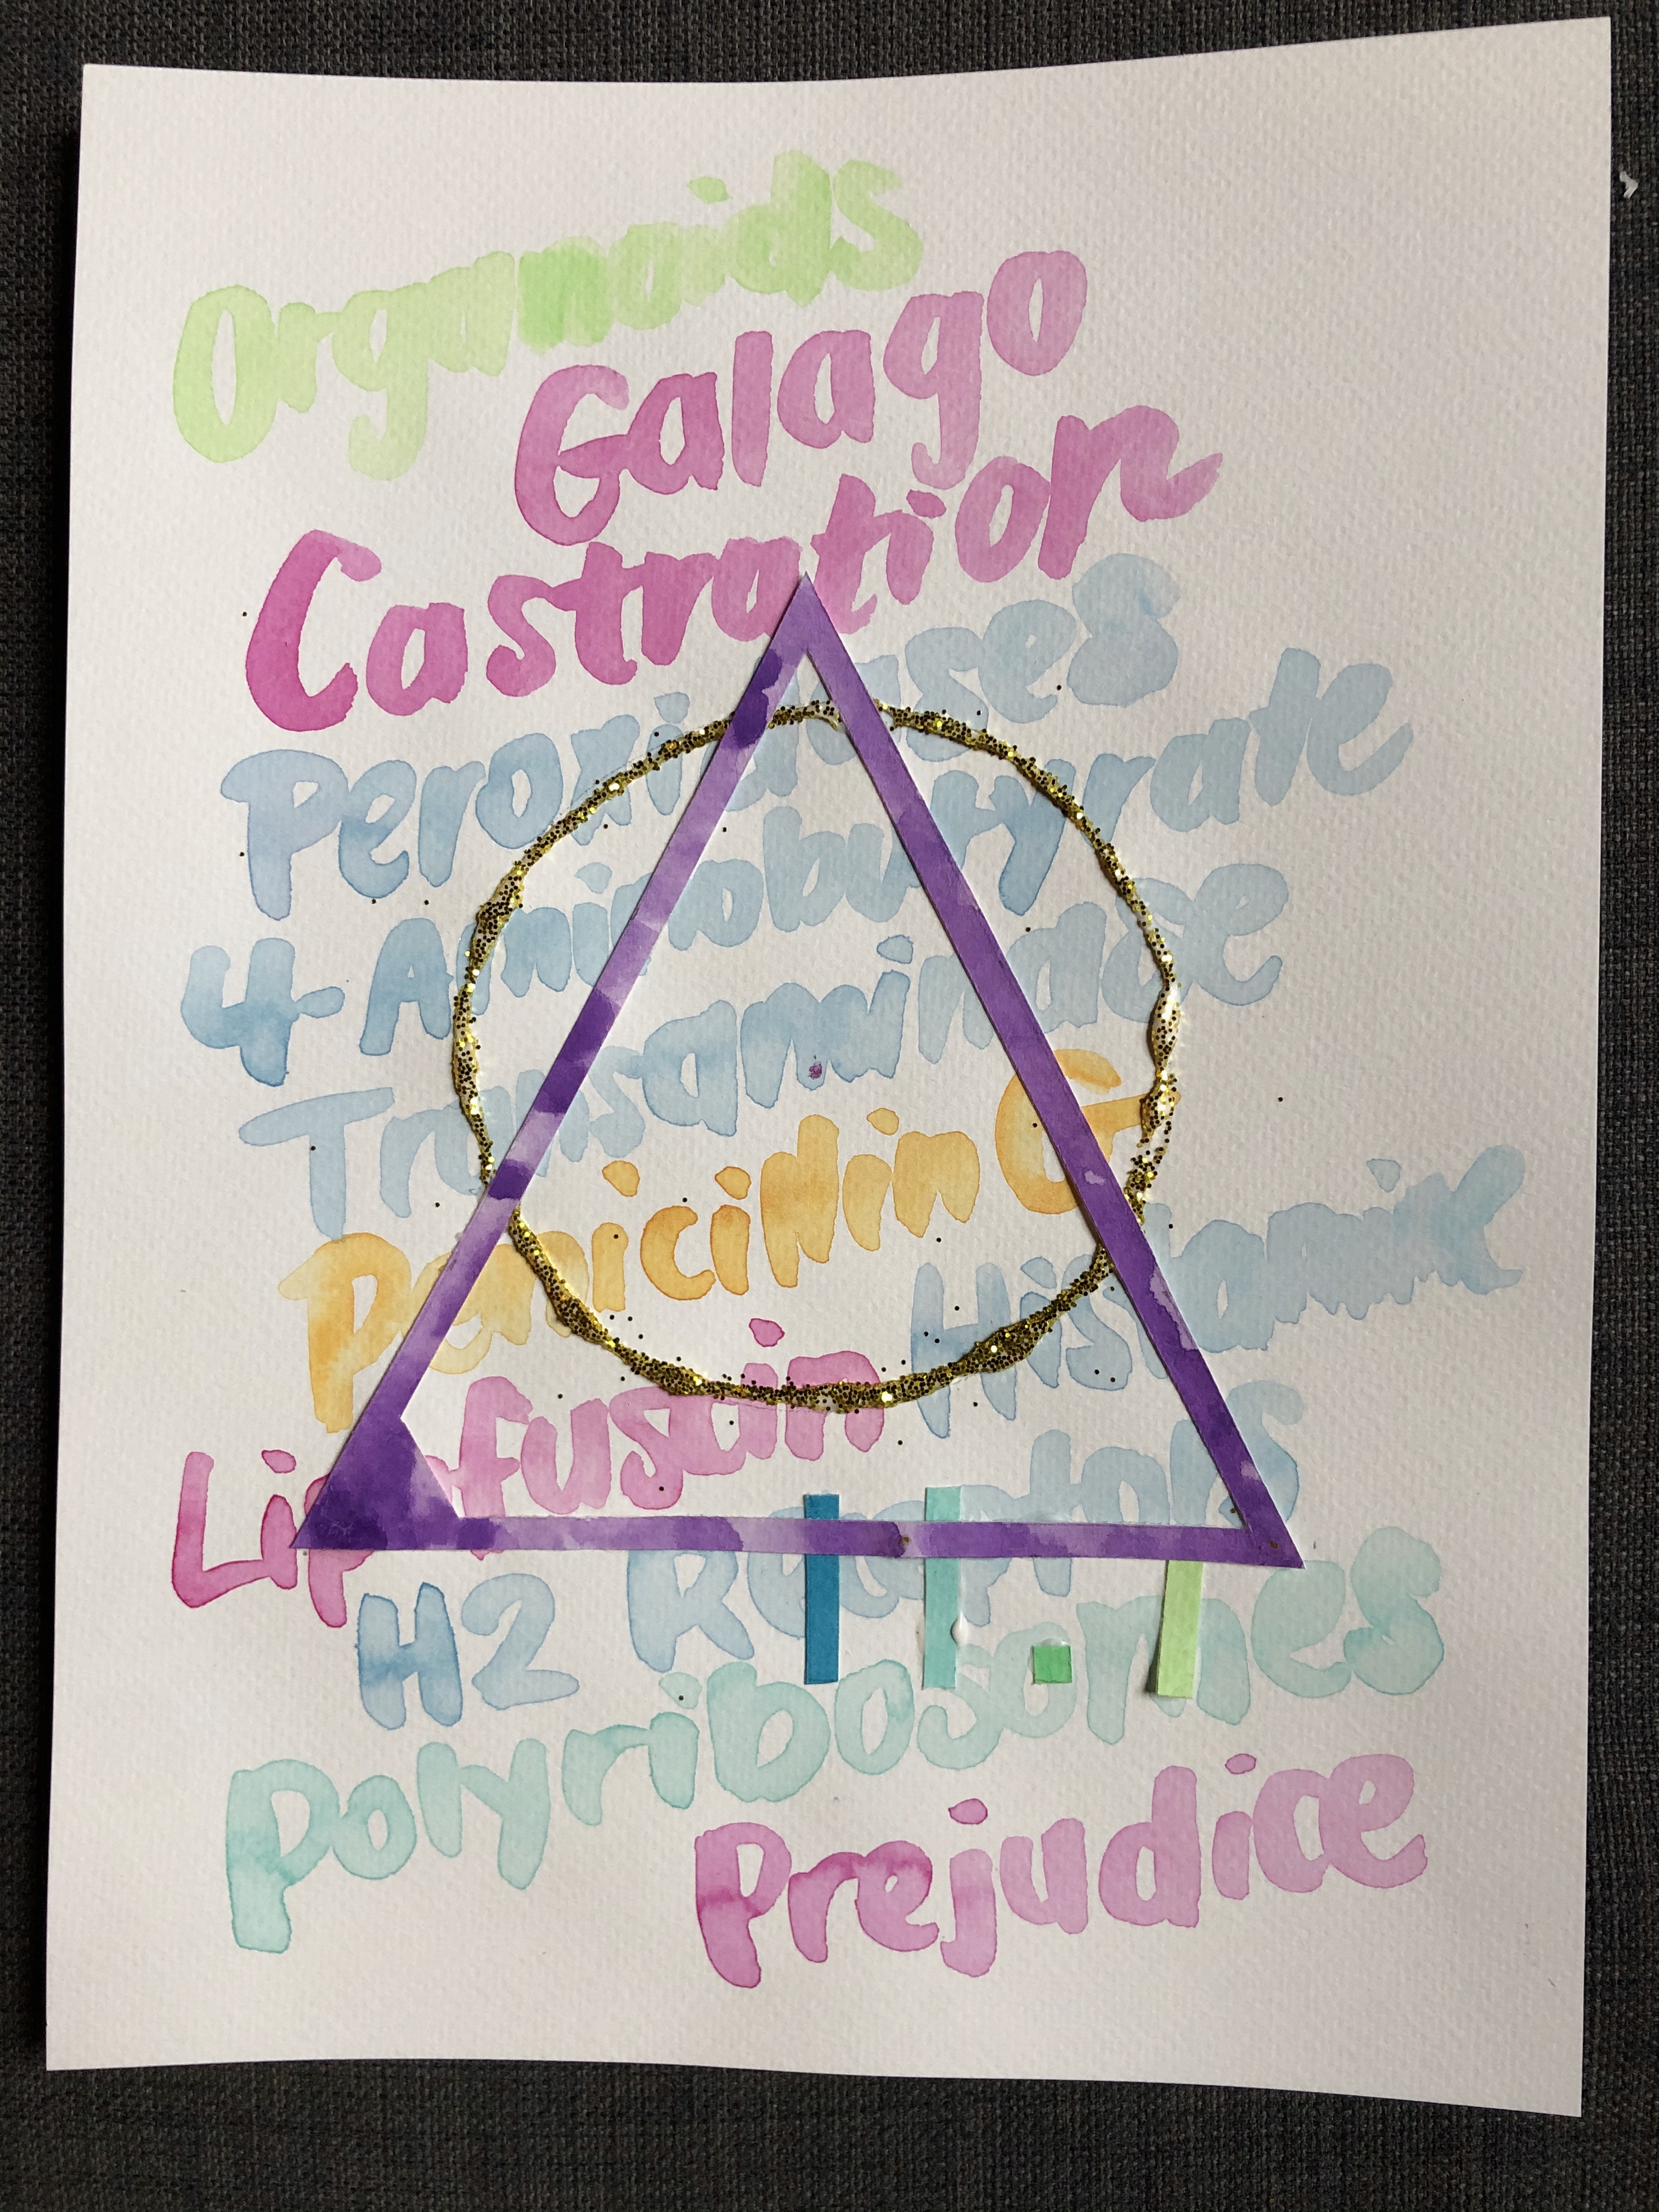 Organoids
Galago
Castration
Peroxidases
4-Aminobutyrate
Transaminase
Penicillin G
Histamine
Lipofuscin
H2 Receptors
Polyribosomes
Prejudice